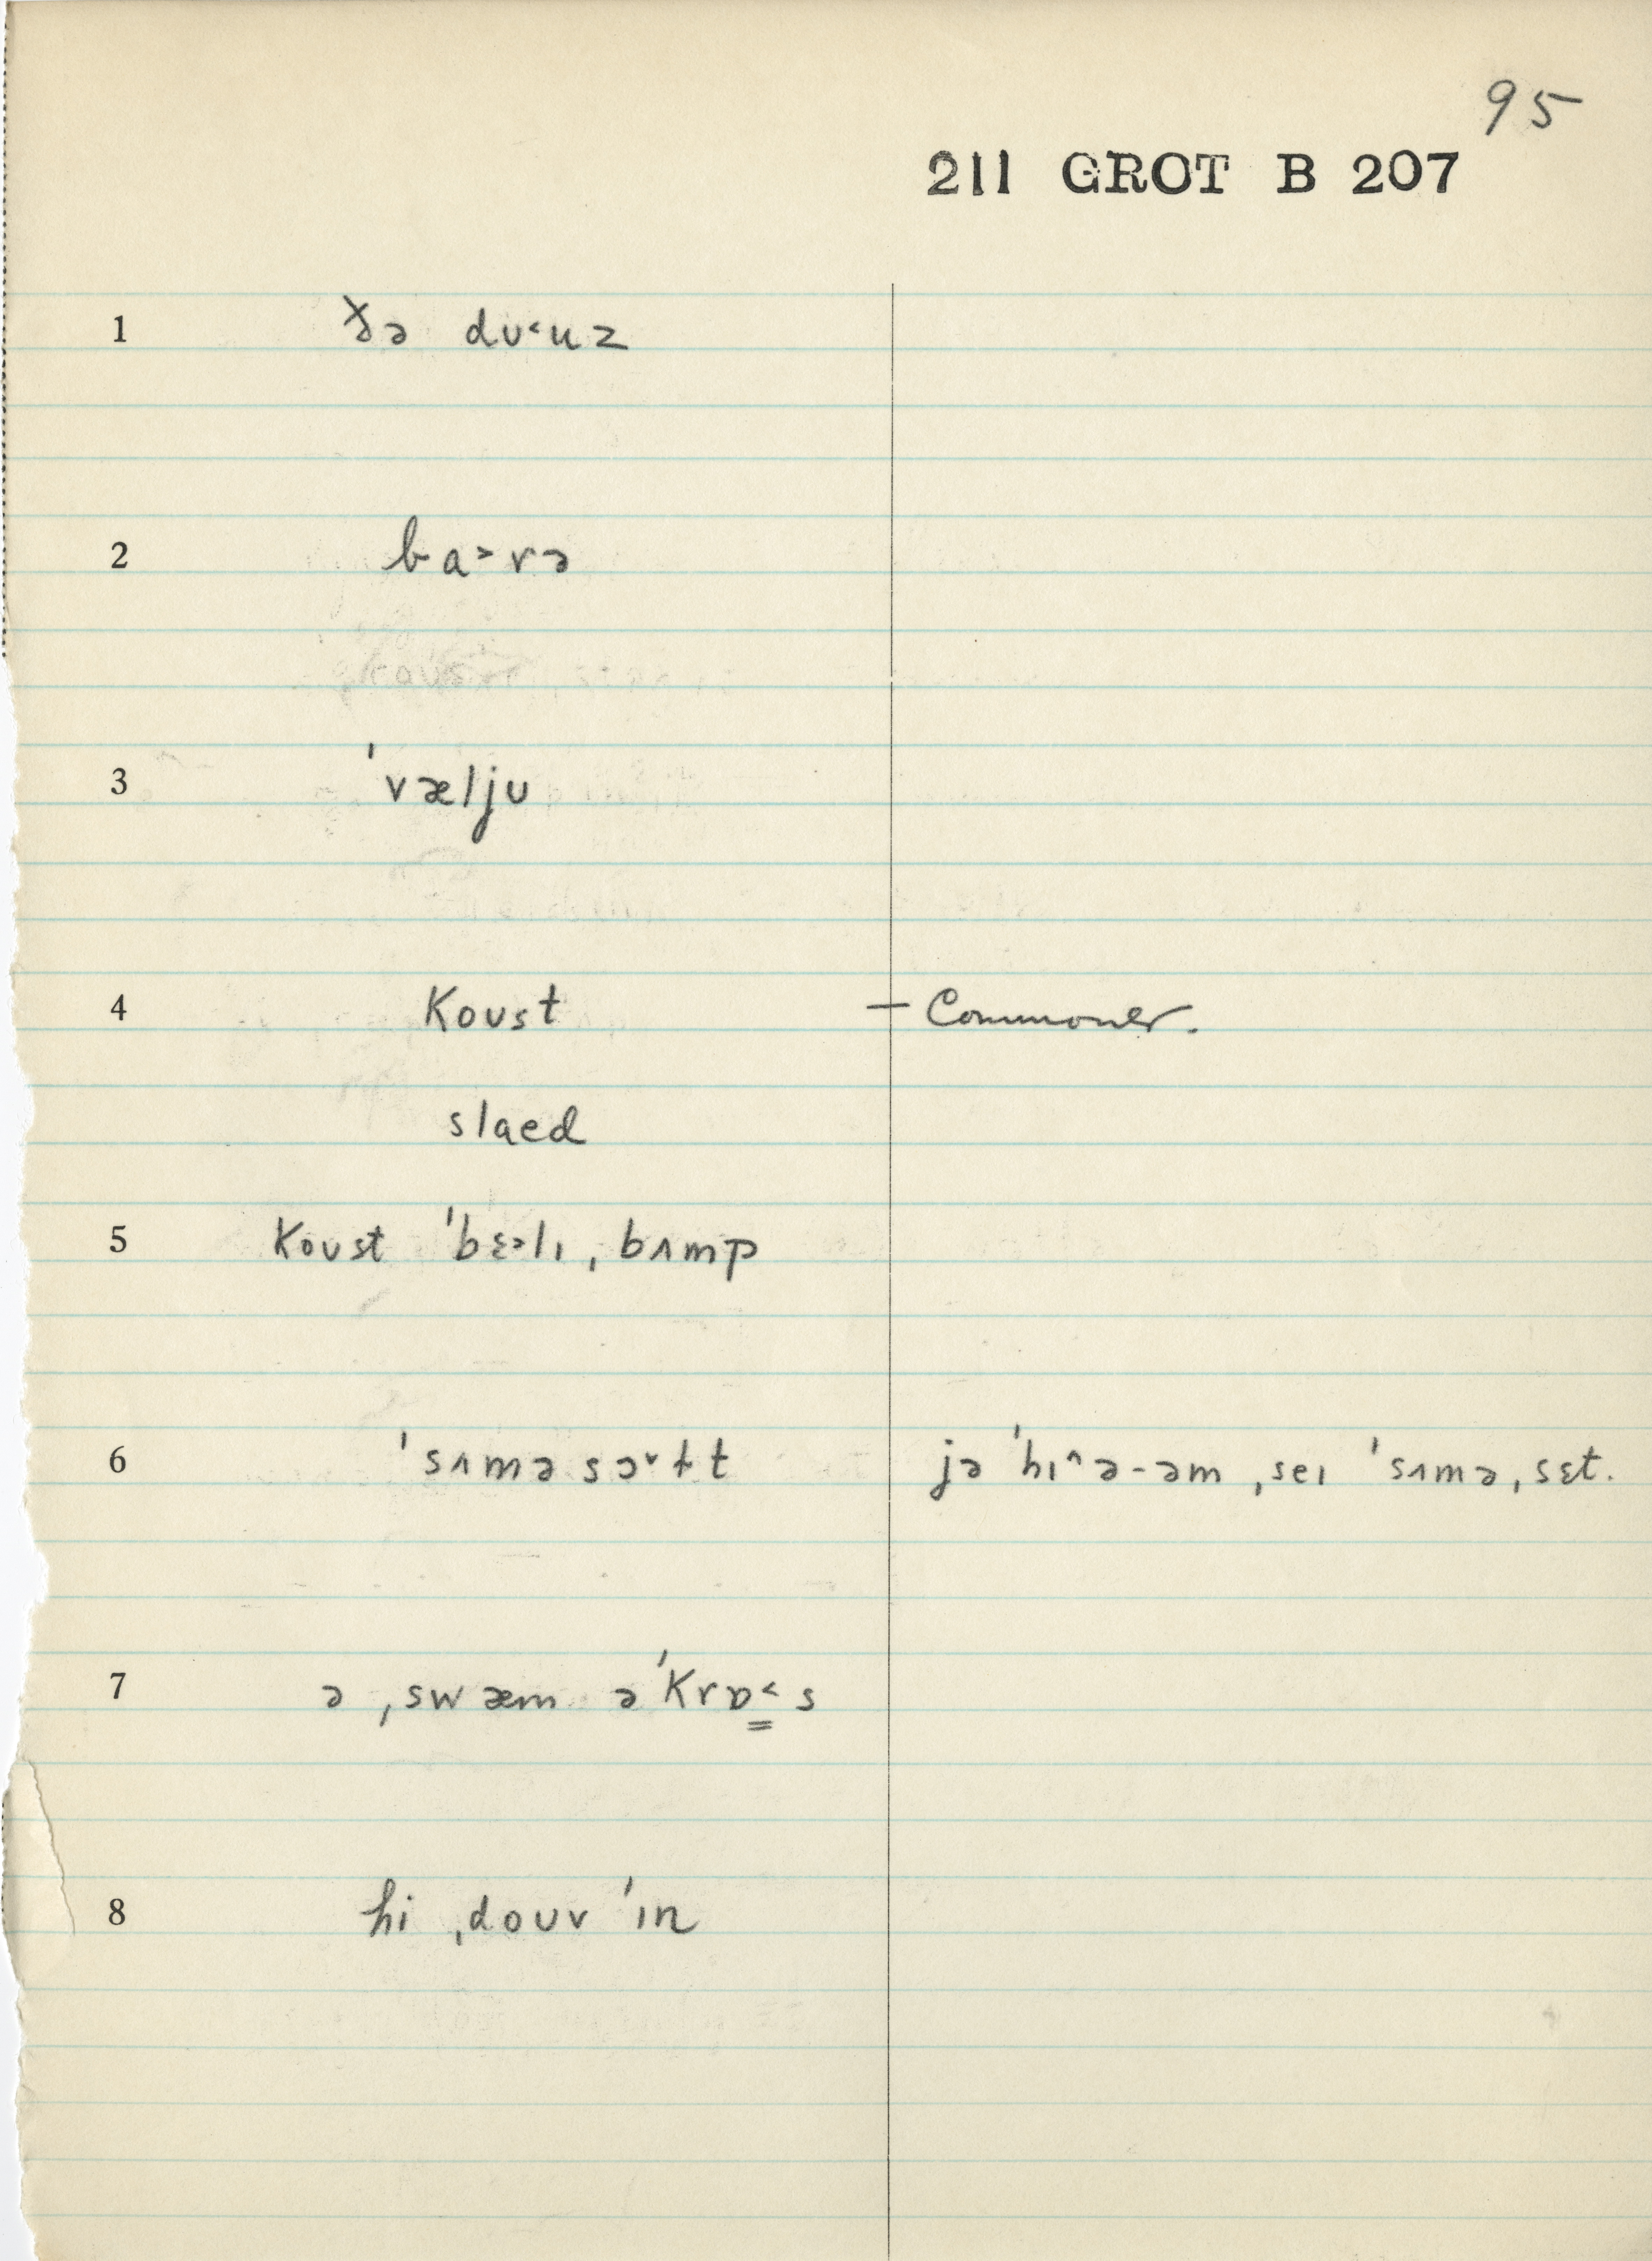 95
211 GROT B 207
1 ðə dʊ˂uz
2 ba˃rə
3 ˈvæljʊ
4 koʊst — Commoner.
slaed
5 koʊst ˈbɛ˃lɪ ˌbʌmp
6 ˈsʌməsɔ˅ɫt jə ˈhɪ˄ə-əm ˌseɪ ˈsʌmə ˌsɛt.
7 ə ˌswæm əˈkrɒ̳˂s
8 hi ˌdoʊv ˈɪn